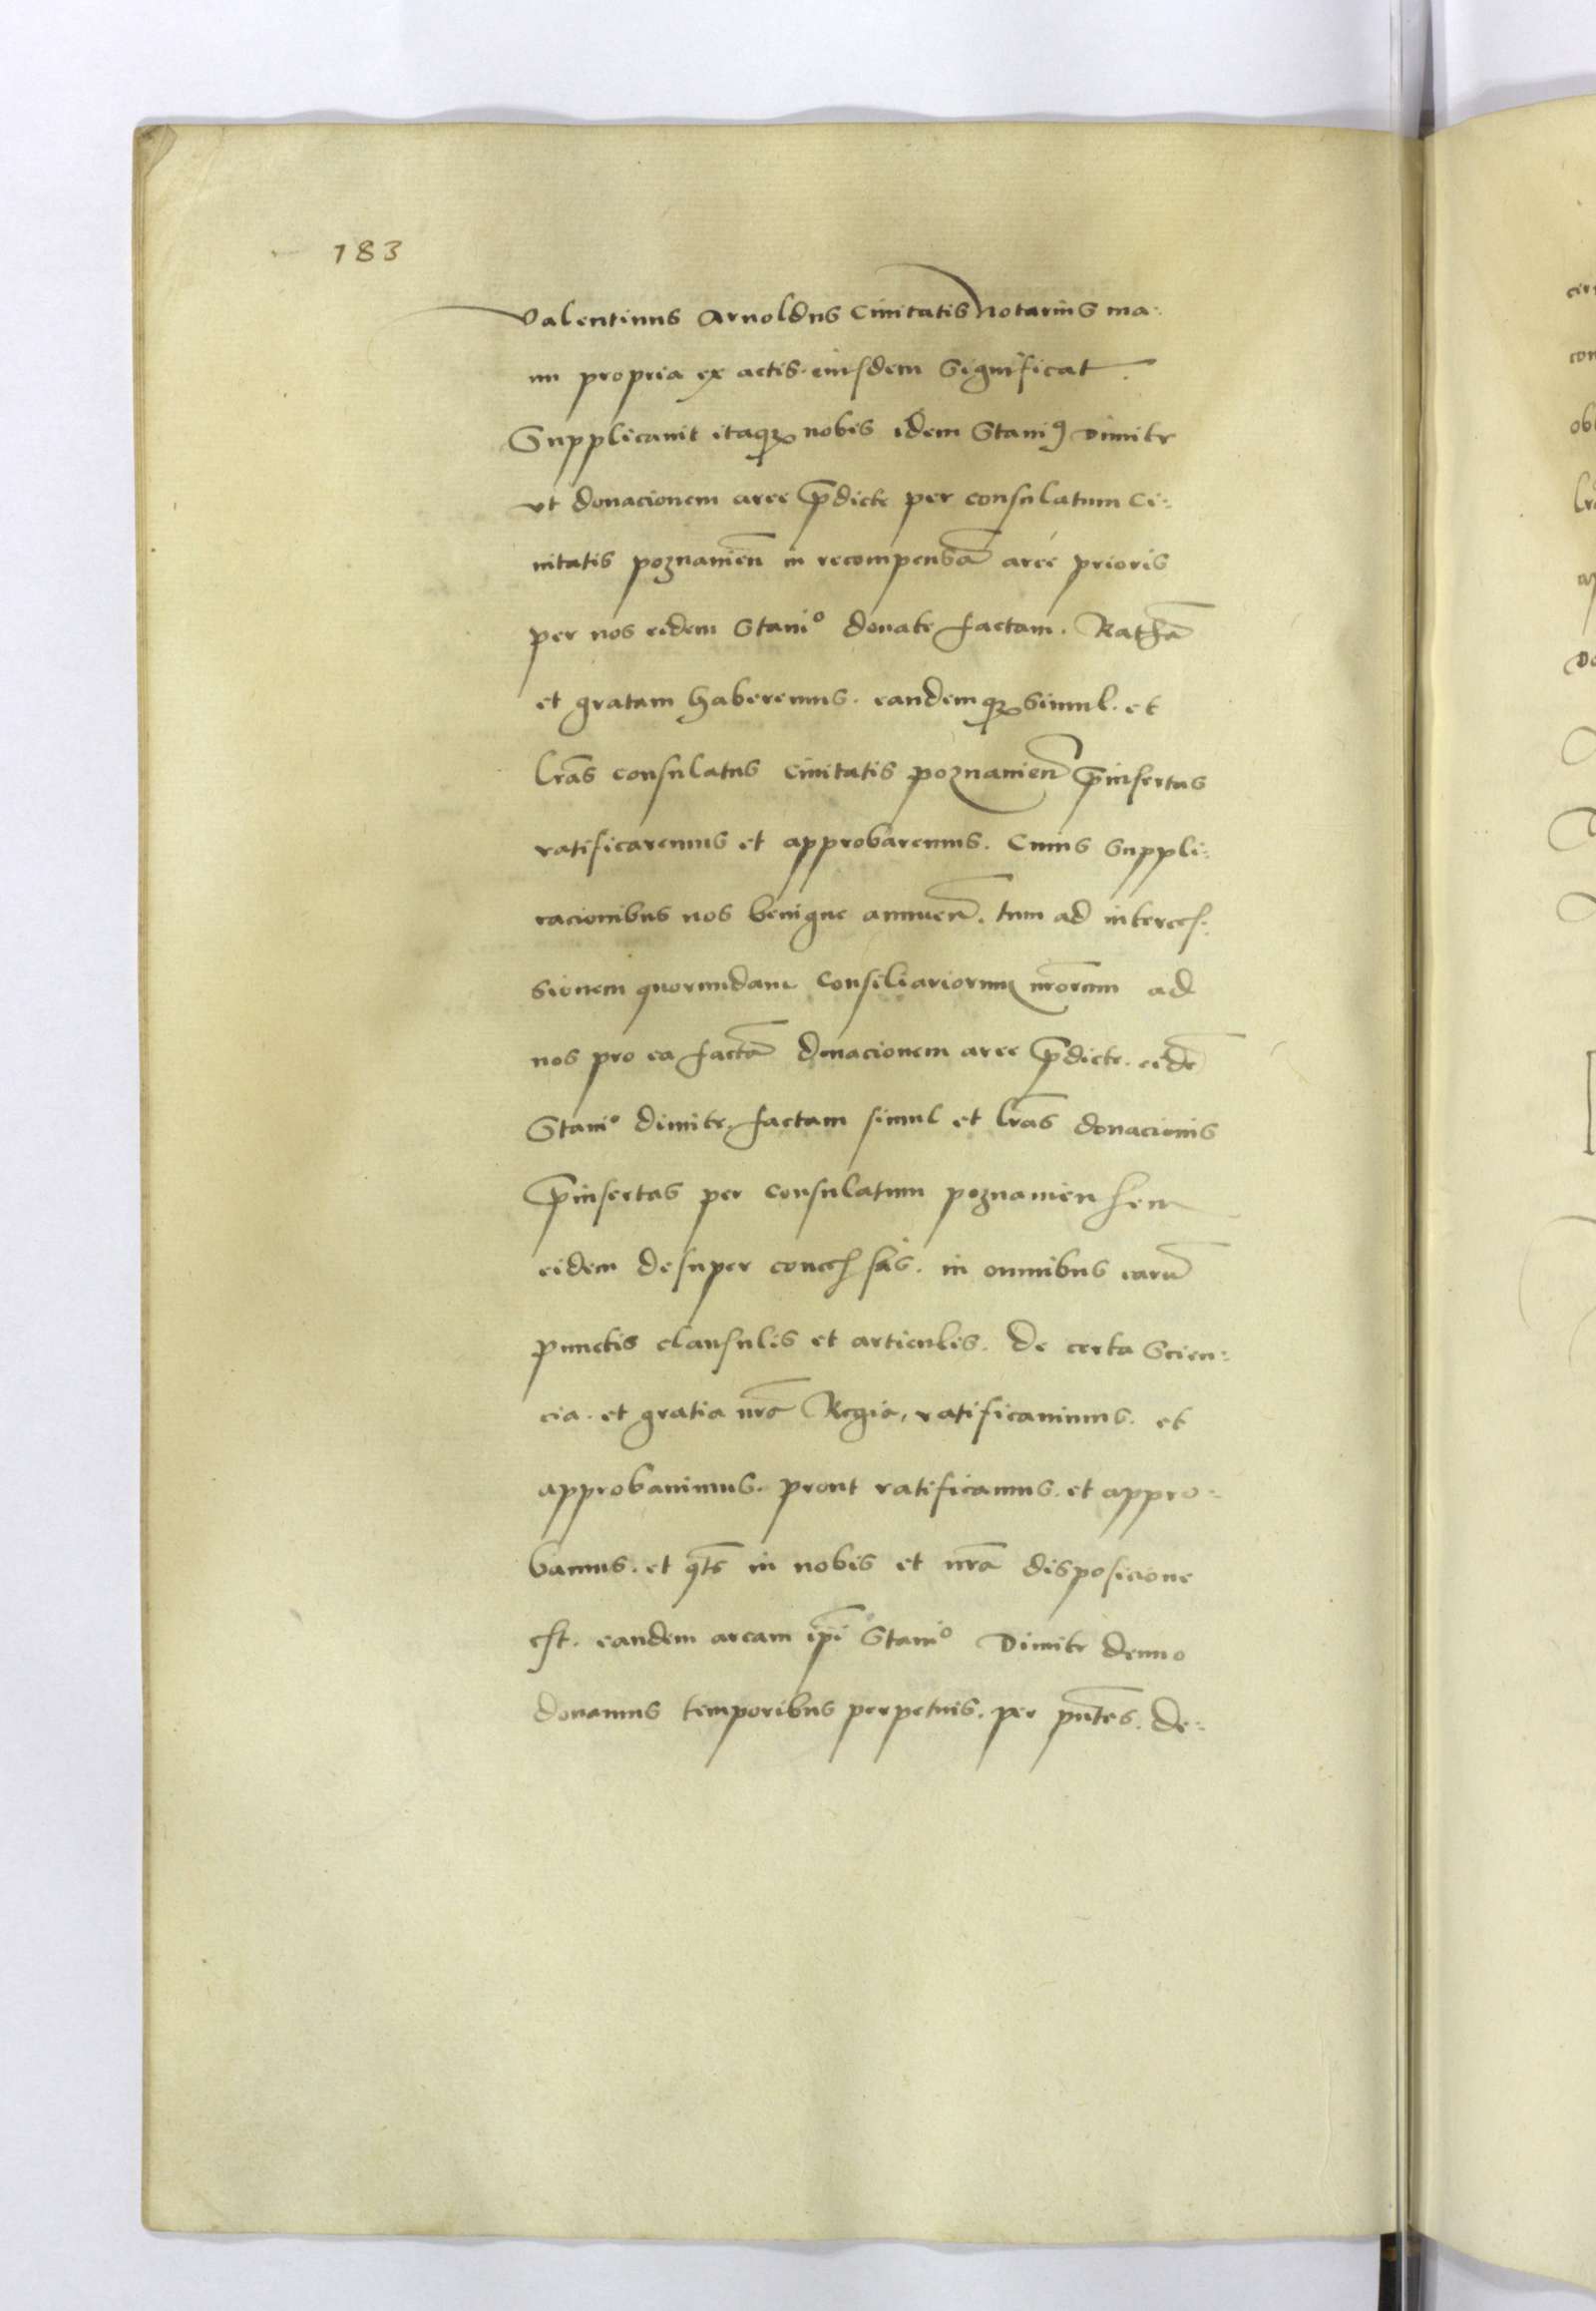 183
Valentinus Arnoldus Civitatis Notarius ma:
nu propria ex actis eiusdem Significat.
Supplicavit itaqꝫ nobis idem Staniꝰ Dimitr
vt donacionem aree p̄dicte per consulatum Ci:
uitatis poznanień in recompensā aree prioris
per nos eidem Stanio donate factam. Rathā
et gratam haberemus. eandemqꝫ simul. et
lrās consulatus Ciuitatis poznanień p̄insertas
ratificaremus et approbaremus. Cuius Suppli:
cacionibus nos benigne annueñ. tum ad interces:
sionem quorundam Consiliariorum nrōrum ad
nos pro ea factā donacionem aree p̄dicte. eidē
Stanio dimitr. factam simul et lrās donacionis
p̄insertas per Consulatum poznaniensem
eidem desuper concessas. in omnibus earū
punctis clausulis et articulis. De certa Scien:
cia. et gratia nrā Regia, ratificauimus. et
approbauimus. prout ratificamus. et appro:
bamus. et qts̄ in nobis et nrā disposicione
est. eandem aream ip̄i Stanio Dimitr denuo
donamus temporibus perpetuis. per pn̄tes. de: